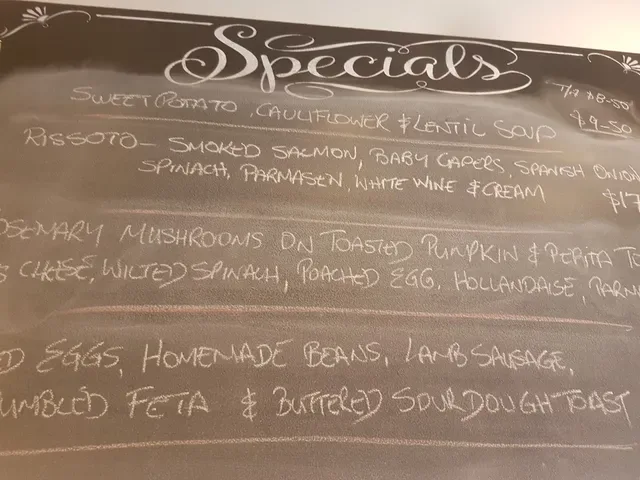 Specials
SWEET POTATO, CAULIFLOWER & LENTIL SOUP
T/A $8-50
$9-50
RISSOTO - SMOKED SALMON, BABY CAPERS, SPANISH ONION
SPINACH, PARMASEN, WHITE WINE & CREAM $17
OSEMARY MUSHROOMS ON TOASTED PUMPKIN & PEPITA TO
S CHEESE, WILTED SPINACH, POACHED EGG, HOLLANDAISE, PARM
ED EGGS, HOMEMADE BEANS, LAMB SAUSAGE,
UMBLED FETA & BUTTERED SOURDOUGH TOAST